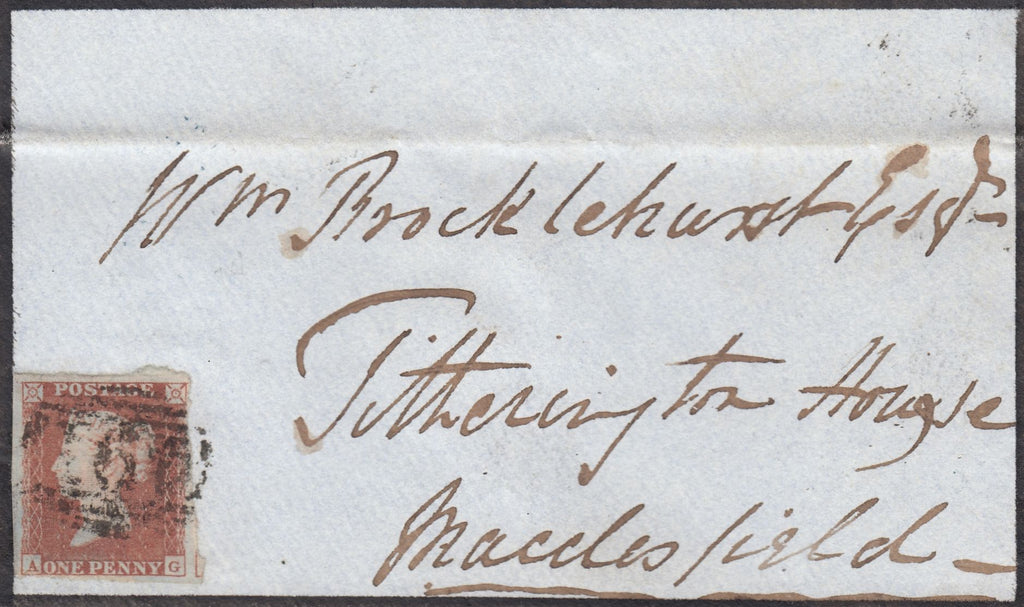 Wm Brocklehurst Esqr
Tytherington House
Macclesfield
POSTAGE
A ONE PENNY G